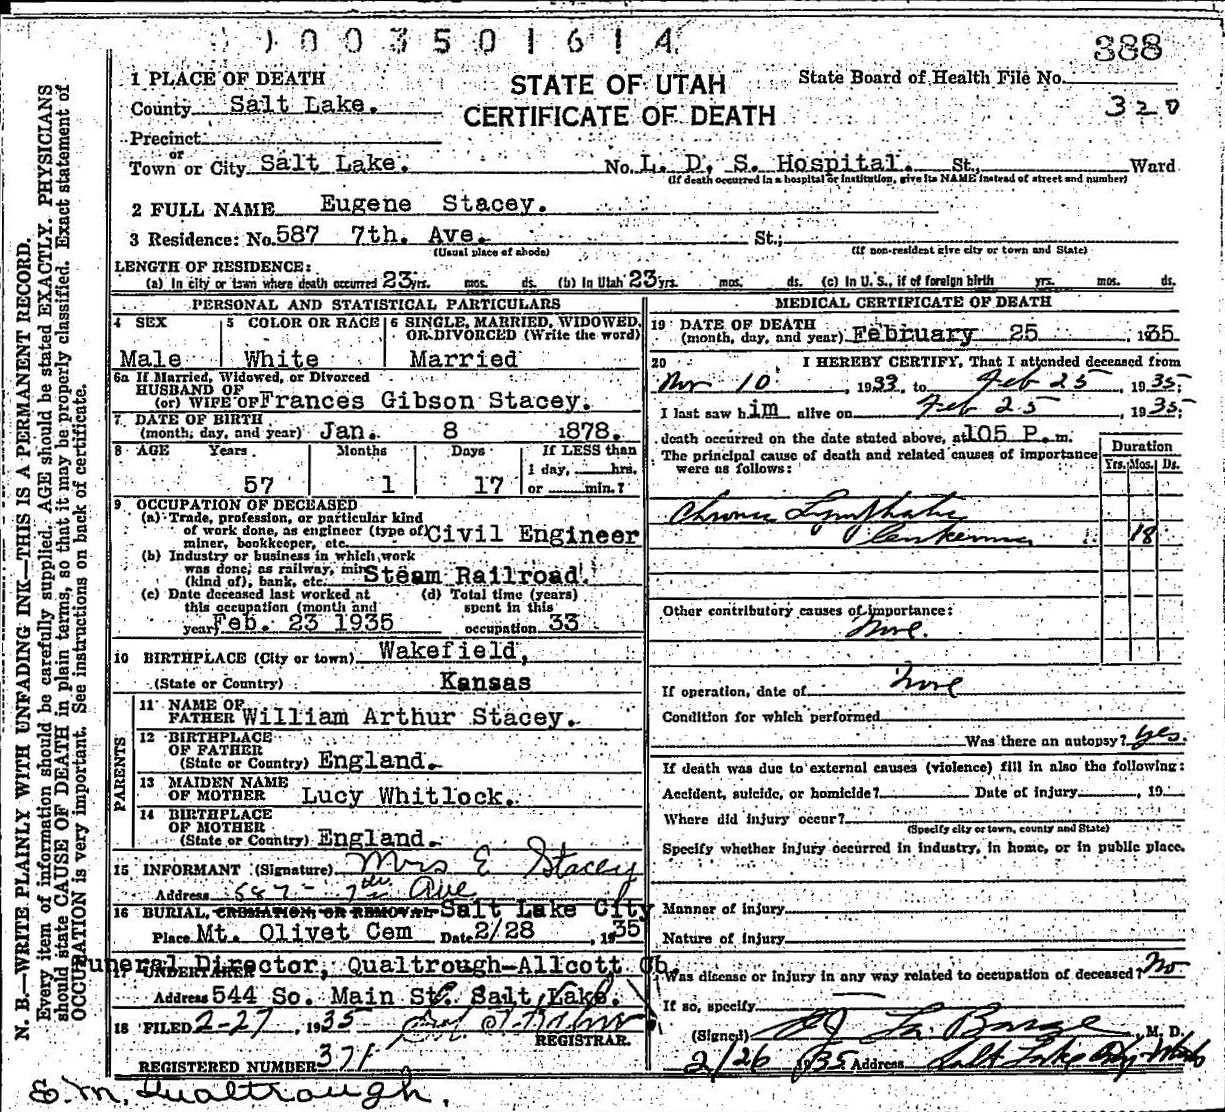 1003501614
388
1 PLACE OF DEATH
STATE OF UTAH
CERTIFICATE OF DEATH
State Board of Health File No.
320
County Salt Lake.
Precinct
or
Town or City Salt Lake. No. L. D. S. Hospital. St., Ward
(If death occurred in a hospital or institution, give its NAME instead of street and number)
2 FULL NAME Eugene Stacey.
3 Residence: No. 587 7th. Ave. St.;
(Usual place of abode) (If non-resident give city or town and State)
LENGTH OF RESIDENCE:
(a) In city or town where death occurred 23 yrs. mos. ds. (b) In Utah 23 yrs. mos. ds. (c) In U. S., if of foreign birth yrs. mos. ds.
PERSONAL AND STATISTICAL PARTICULARS
4 SEX
Male
5 COLOR OR RACE
White
6 SINGLE, MARRIED, WIDOWED, OR DIVORCED (Write the word)
Married
6a If Married, Widowed, or Divorced
HUSBAND OF
(or) WIFE OF Frances Gibson Stacey.
7 DATE OF BIRTH
(month, day, and year) Jan. 8 1878.
8 AGE Years Months Days If LESS than
1 day, hrs.
57 1 17 or min.?
9 OCCUPATION OF DECEASED
(a) Trade, profession, or particular kind
of work done, as engineer (type of) Civil Engineer
miner, bookkeeper, etc.
(b) Industry or business in which work
was done, as railway, mine
(kind of), bank, etc. Steam Railroad.
(c) Date deceased last worked at
this occupation (month and
year) Feb. 23 1935
(d) Total time (years)
spent in this
occupation 33
10 BIRTHPLACE (City or town) Wakefield,
(State or Country) Kansas
PARENTS
11 NAME OF
FATHER William Arthur Stacey.
12 BIRTHPLACE
OF FATHER
(State or Country) England.
13 MAIDEN NAME
OF MOTHER Lucy Whitlock.
14 BIRTHPLACE
OF MOTHER
(State or Country) England.
15 INFORMANT (Signature) Mrs E Stacey
Address 587 - 7th Ave
16 BURIAL, CREMATION, OR REMOVAL Salt Lake City
Place Mt. Olivet Cem Date 2/28, 1935
17 UNDERTAKER
Funeral Director, Qualtrough-Allcott Co.
Address 544 So. Main St. Salt Lake.
18 FILED 2-27, 1935
REGISTRAR.
REGISTERED NUMBER 371
E. M. Qualtrough.
MEDICAL CERTIFICATE OF DEATH
19 DATE OF DEATH
(month, day, and year) February 25, 1935
20 I HEREBY CERTIFY, That I attended deceased from
Nov 10, 1933, to Feb 25, 1935;
I last saw him alive on Feb 25, 1935;
death occurred on the date stated above, at 105 P. m.
The principal cause of death and related causes of importance
were as follows:
Duration
Yrs. Mos. Ds.
Chronic Lymphatic
Leukemia 18
Other contributory causes of importance:
None.
If operation, date of None
Condition for which performed
Was there an autopsy? Yes.
If death was due to external causes (violence) fill in also the following:
Accident, suicide, or homicide? Date of injury, 19
Where did injury occur?
(Specify city or town, county and State)
Specify whether injury occurred in industry, in home, or in public place.
Manner of injury
Nature of injury
Was disease or injury in any way related to occupation of deceased? No
If so, specify
(Signed) La Barge, M. D.
2/26 1935 Address Salt Lake City Utah
N. B.—WRITE PLAINLY WITH UNFADING INK—THIS IS A PERMANENT RECORD.
Every item of information should be carefully supplied. AGE should be stated EXACTLY. PHYSICIANS
should state CAUSE OF DEATH in plain terms, so that it may be properly classified. Exact statement of
OCCUPATION is very important. See instructions on back of certificate.